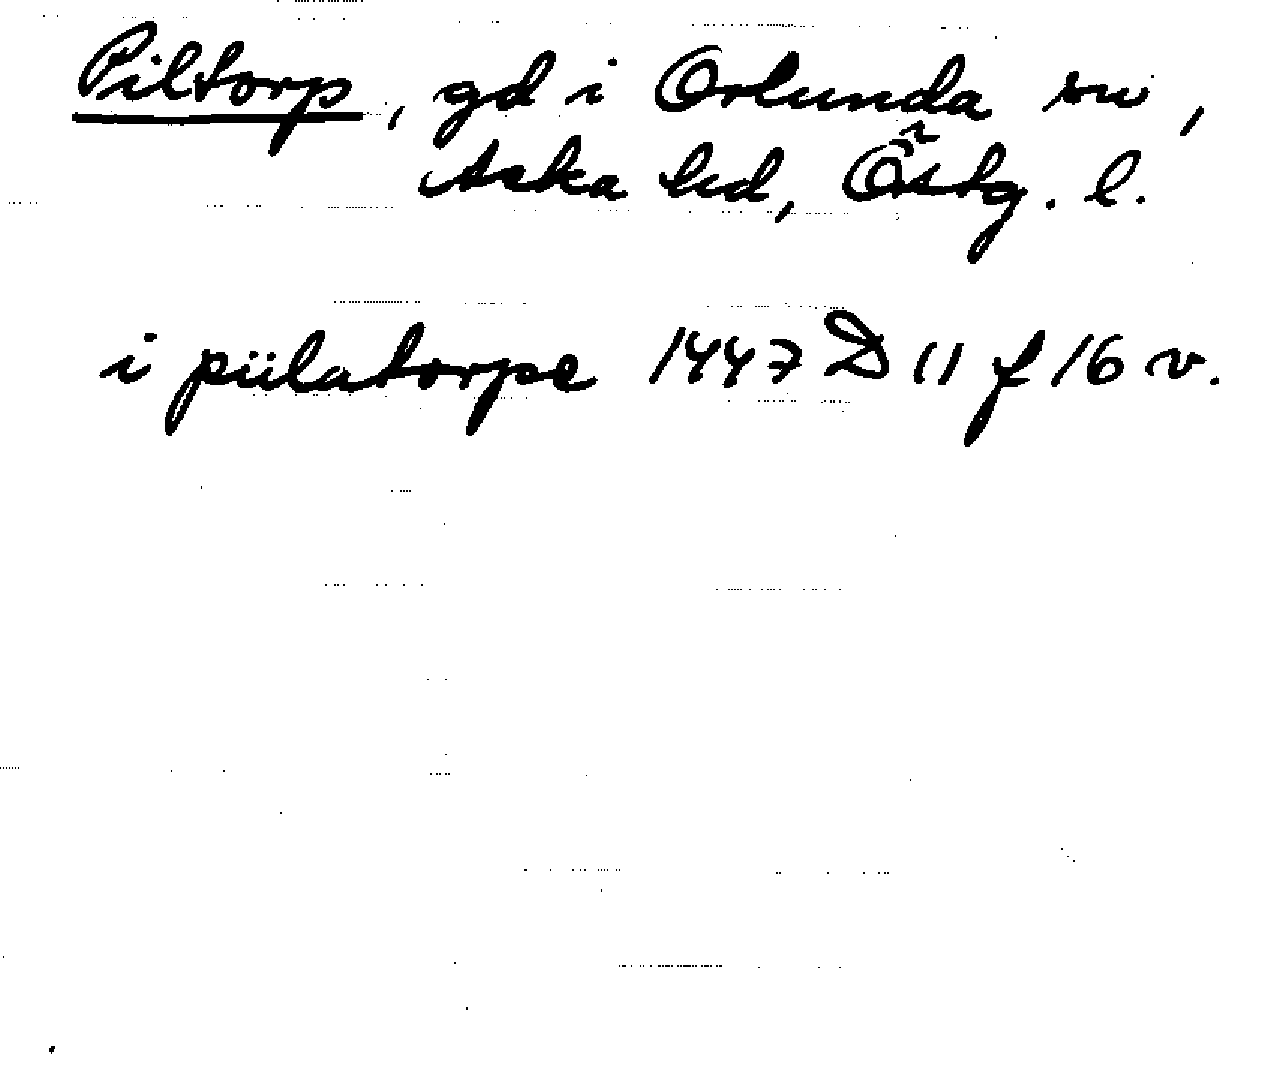 Piltorp, gd i Orlunda sn,
Aska hd, Östg. l.
i piilatorpe 1447 D 11 f 16 v.